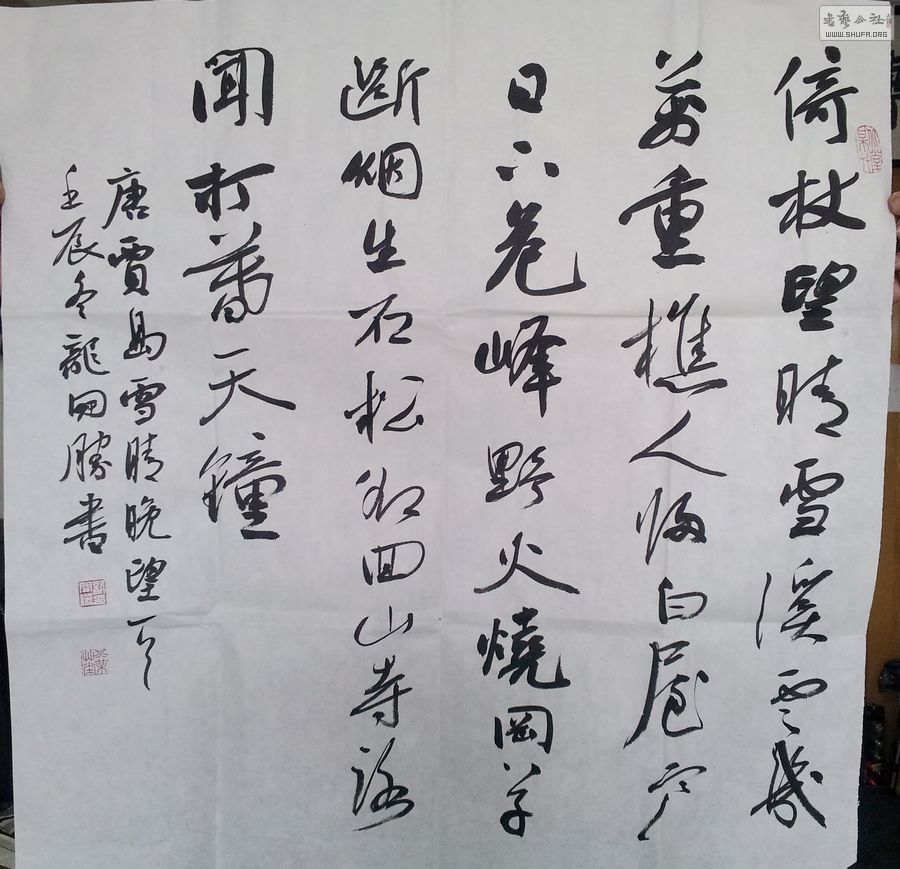 倚杖望晴雪溪雲幾
萬重樵人歸白屋寒
日下危峰野火燒岡草
斷烟生石松却回山寺路
聞打暮天鐘
唐賈島雪晴晚望一首
壬辰冬龍勝書
書藝公社
WWW.SHUFA.ORG